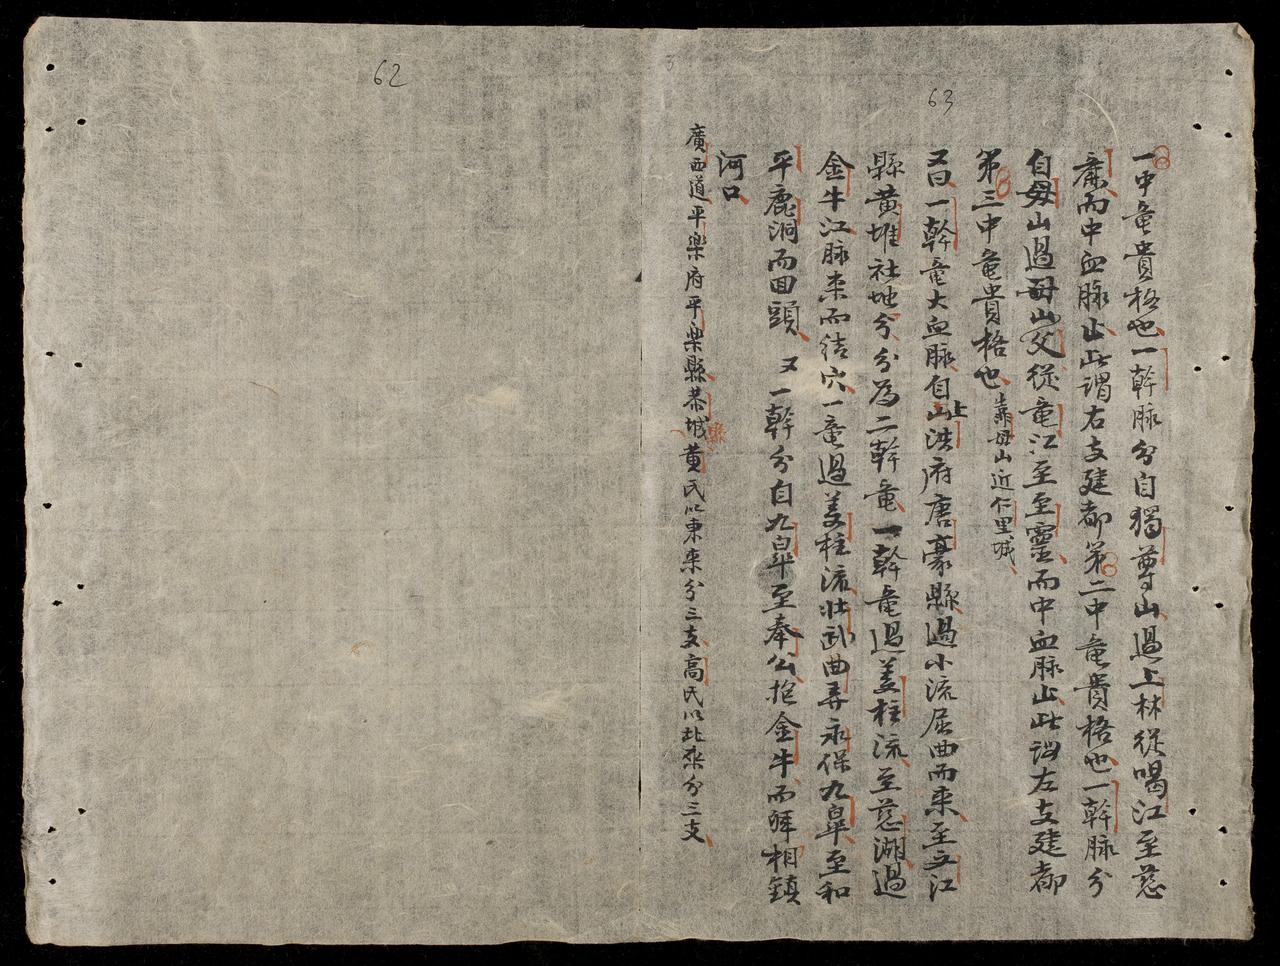 62
63
一中竜貴格也一幹脉分自獨尊山過上林從喝江至慈
廉而中血脉止此謂右支建都第二中竜貴格也一幹脉分
自母山過母山父從竜江至至靈而中血脉止此謂左支建都
第三中竜貴格也 母山近仁里城
又曰一幹竜大血脉自山上洪府唐豪縣過小流屈曲而來至文江
縣黄堆社地分分為二幹竜一幹竜過姜柱流至慈湖過
金牛江脉來而結穴一竜過姜柱流壯武曲弄永保九皐至和
平鹿洞而回頭 又一幹分自九皐至奉公抱金牛而 相鎮
河口
廣西道平楽府平楽縣恭城縣黄氏以東來分三支高氏以北來分三支